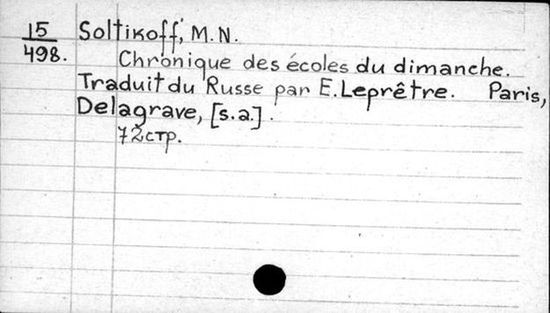 15 Soltikoff, M.N.
498. Chronique des écoles du dimanche.
Traduit du Russe par E. Leprêtre. Paris,
Delagrave, [s.a.].
72 стр.